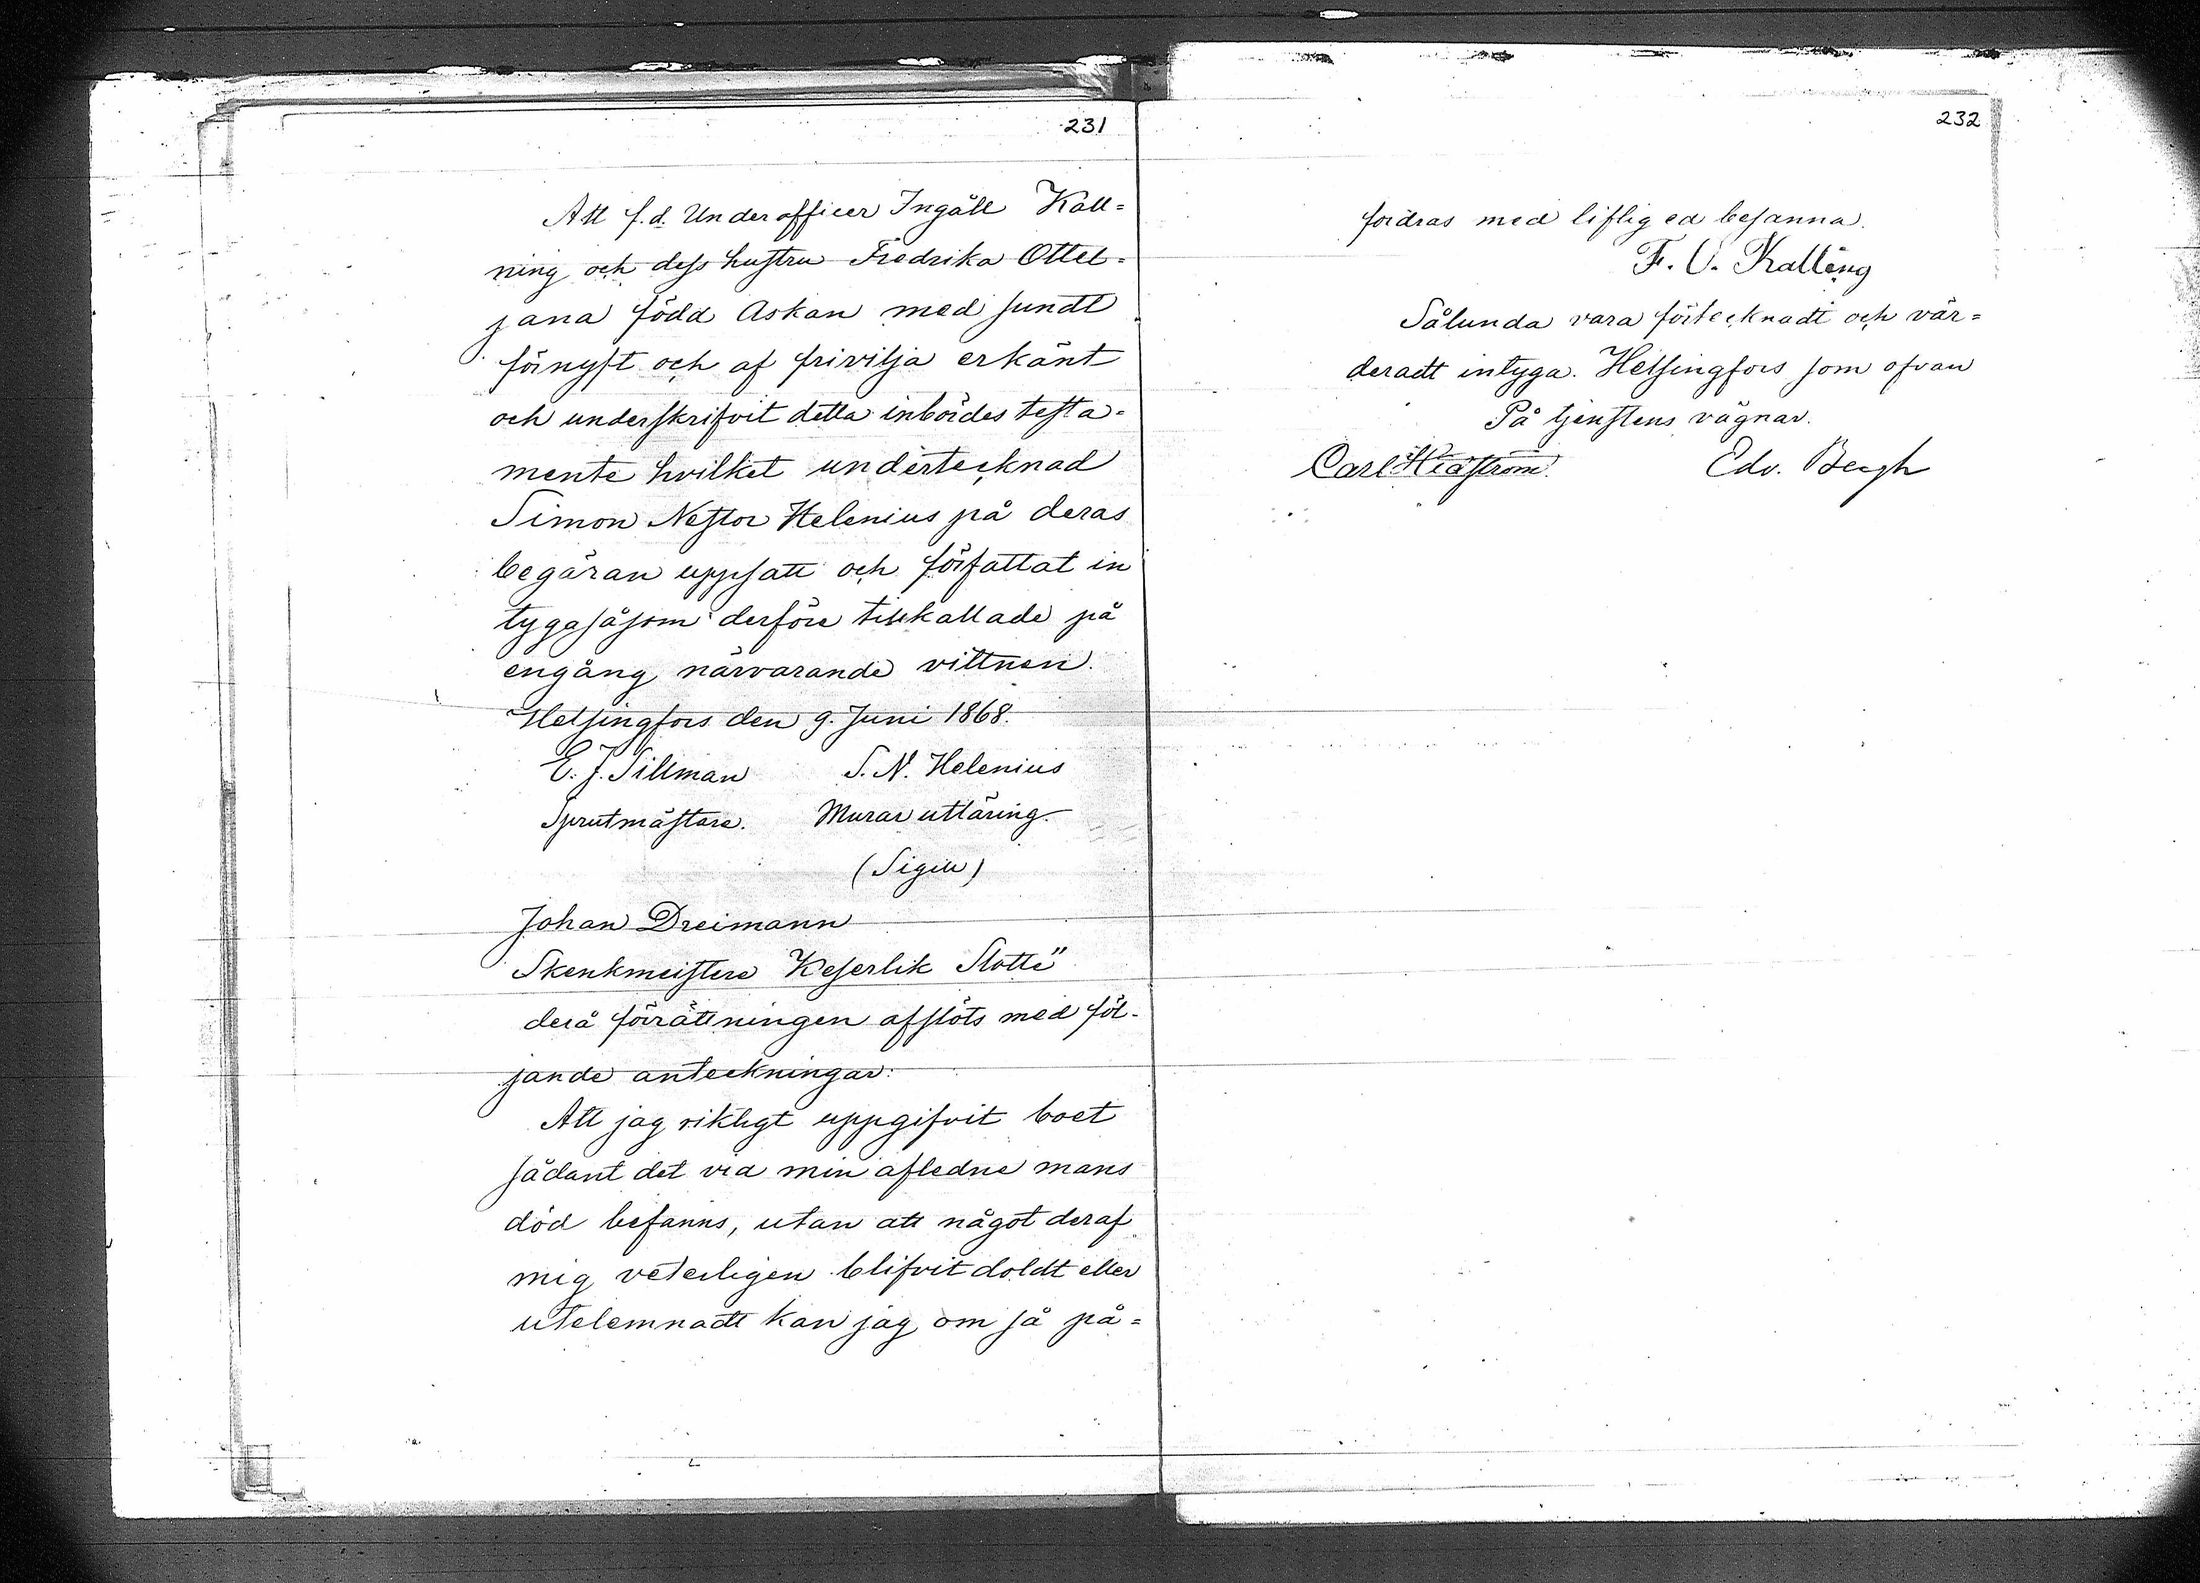 231
Att f.d. Underofficer Ingäll Kall=
ning och dess hustru Fredrika Ottel=
jana född Askan med sundt
förnuft och af frivilja erkänt
och underskrifvit detta inbördes testa=
mente hvilket undertecknad
Simon Nestor Helenius på deras
begäran uppsatt och författat in
tyga såsom derföre tillkallade på
engång närvarande vittnen.
Helsingfors den 9. Juni 1868.
E. J. Sillman S. N. Helenius
Sprutmästare. Murar utläring
(Sigill)
Johan Dreimann
Skenkmeistere Keserlik Slotte"
derå förrättningen afslöts med föl-
jande anteckningar:
Att jag riktigt uppgifvit boet
sådant det vid min aflidne mans
död befanns, utan att något deraf
mig veterligen blifvit doldt eller
utelemnadt kan jag om så på=
232
fordras med liflig ed besanna.
F. O. Kalling
Sålunda vara förtecknadt och vär=
deradt intyga. Helsingfors som ofvan
På tjenstens vägnar.
Carl Edv. Bergh